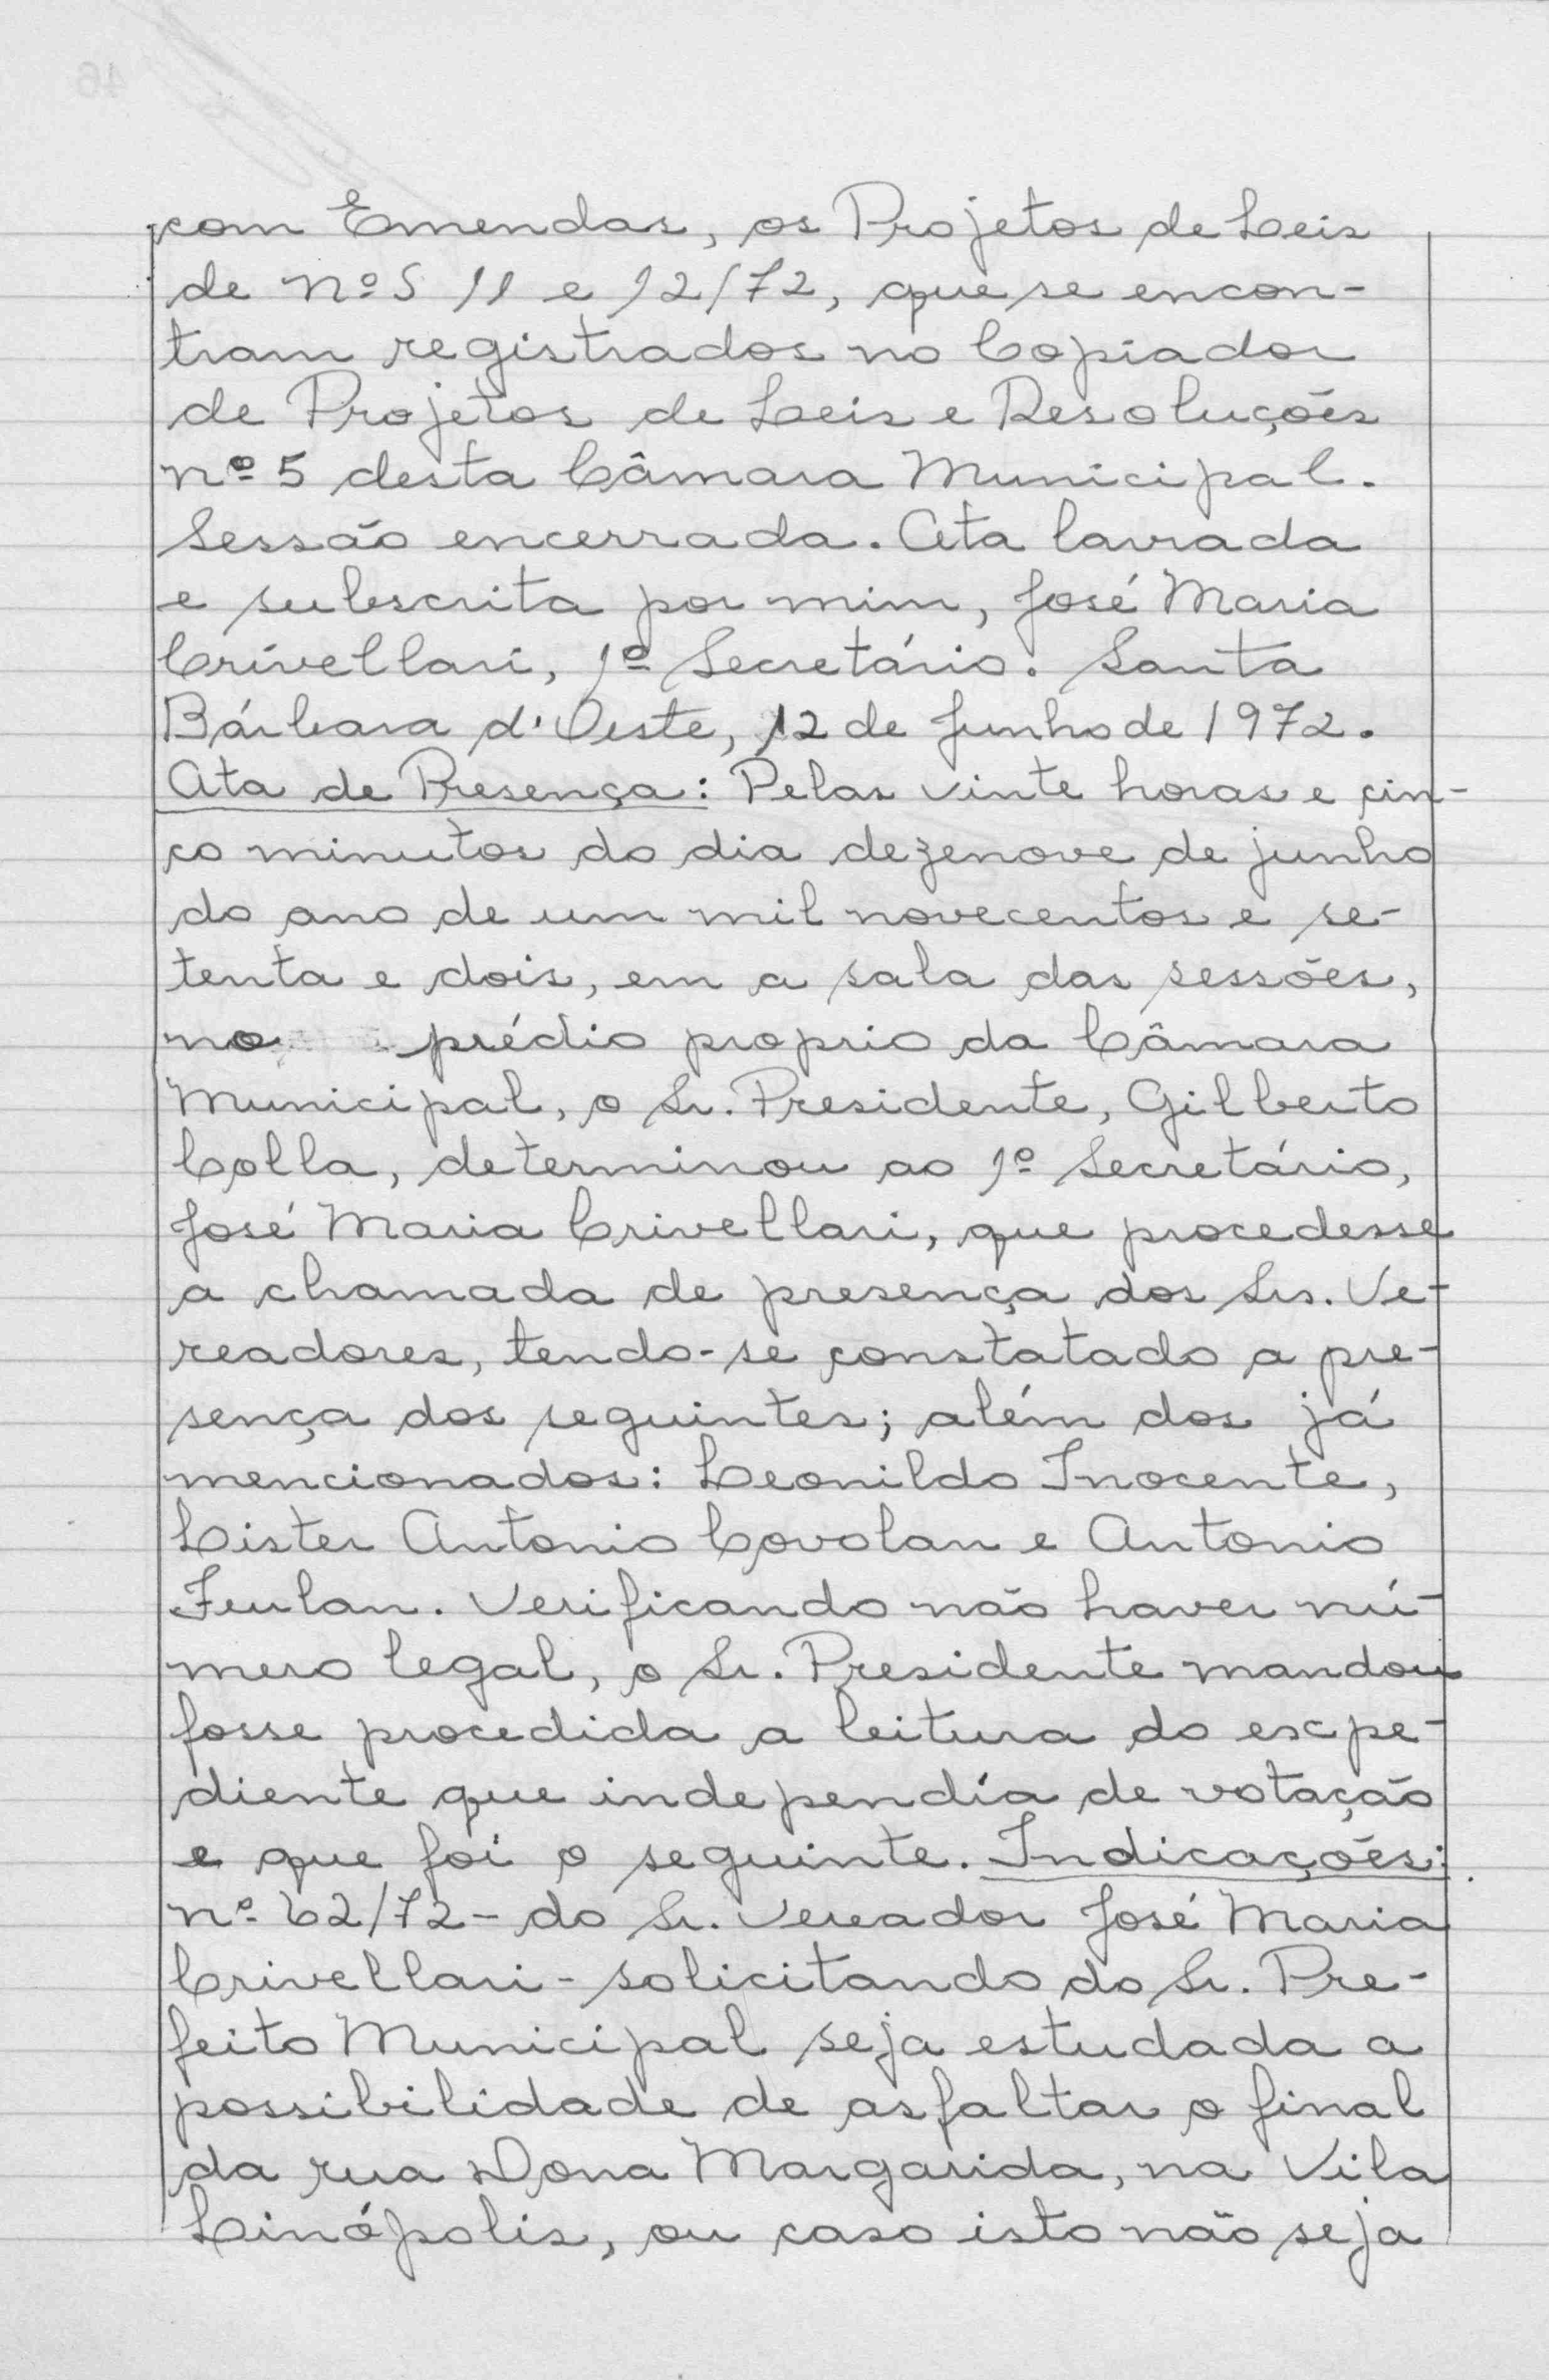 com Emendas, os Projetos de Leis
de nºs 11 e 12/72, que se encon-
tram registrados no Copiador
de Projetos de Leis e Resoluções
nº 5 desta Câmara Municipal.
Sessão encerrada. Ata lavrada
e subscrita por mim, José Maria
Crivellari, 1º Secretário. Santa
Bárbara d'Oeste, 12 de Junho de 1972.
Ata de Presença: Pelas vinte horas e cin-
co minutos do dia dezenove de junho
do ano de um mil novecentos e se-
tenta e dois, em a sala das sessões,
no prédio proprio da Câmara
Municipal, o Sr. Presidente, Gilberto
Colla, determinou ao 1º Secretário,
José Maria Crivellari, que procedesse
a chamada de presença dos Srs. Ve-
readores, tendo-se constatado a pre-
sença dos seguintes; além dos já
mencionados: Leonildo Inocente,
Lister Antonio Covolan e Antonio
Furlan. Verificando não haver nú-
mero legal, o Sr. Presidente mandou
fosse procedida a leitura do expe-
diente que independia de votação
e que foi o seguinte. Indicações:
nº 62/72 - do Sr. Vereador José Maria
Crivellari - solicitando do Sr. Pre-
feito Municipal seja estudada a
possibilidade de asfaltar o final
da rua Dona Margarida, na Vila
Linópolis, ou caso isto não seja